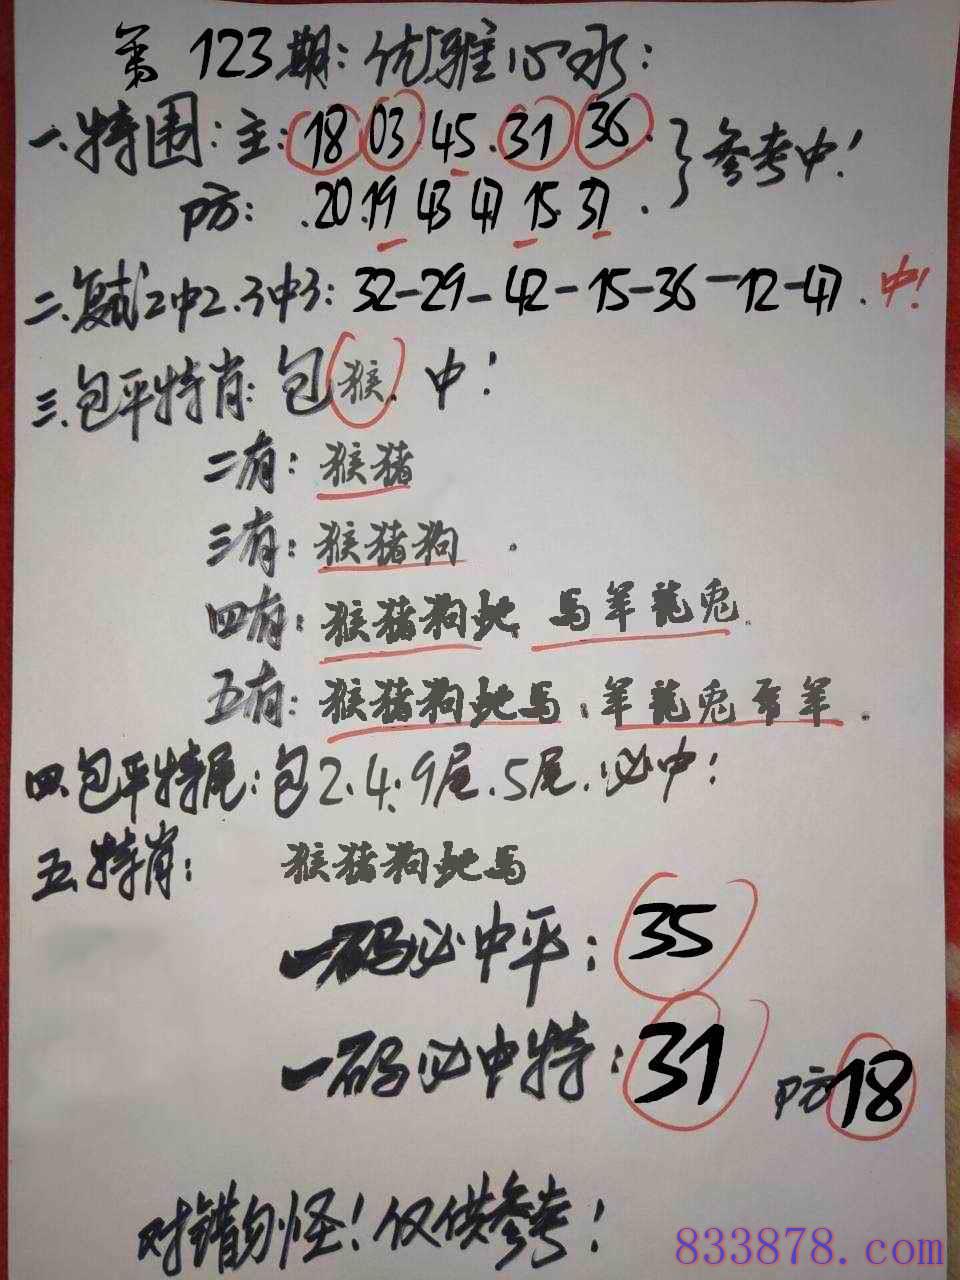 第123期：优雅心水：
一.特围：主：18 03 45.31 36. 参考中！
防：.20.19 43 47 15.37.
二.复试2中2.3中3：32-29-42-15-36-12-47.中！
三.包平特肖：包猴.中！
二有：猴猪
三有：猴猪狗.
四有：猴猪狗蛇.马羊龍兔.
五有：猴猪狗蛇马.羊龍兔 羊.
四.包平特尾：包2.4.9尾.5尾.必中！
五.特肖：猴猪狗蛇马
一码必中平：35
一码必中特：31 防18
对错勿怪！仅供参考！
833878.com